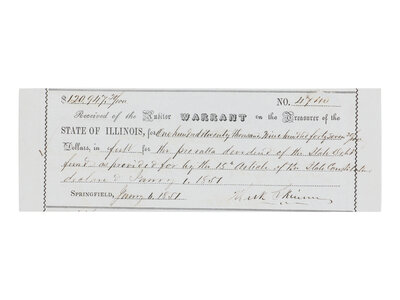 $120,947 /100 NO.
Received of the Auditor WARRANT on the Treasurer of the
STATE OF ILLINOIS, for One hundred twenty thousand Nine hundred forty seven /100
Dollars, in full for the pro rata dividend of the State Debt
fund as provided for by the 15th Article of the State Constitution
declared Janry 1. 1851
SPRINGFIELD, Janry 6. 1851 Mark Skinner